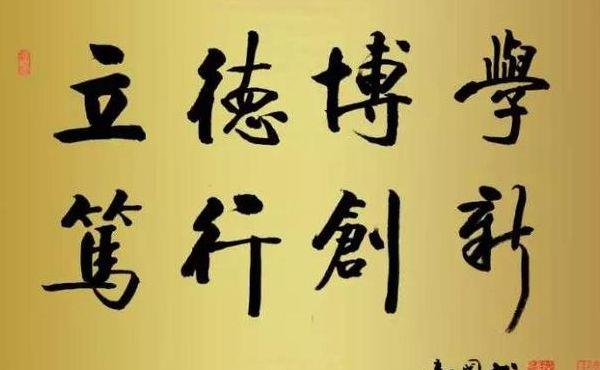 立德博學
篤行創新